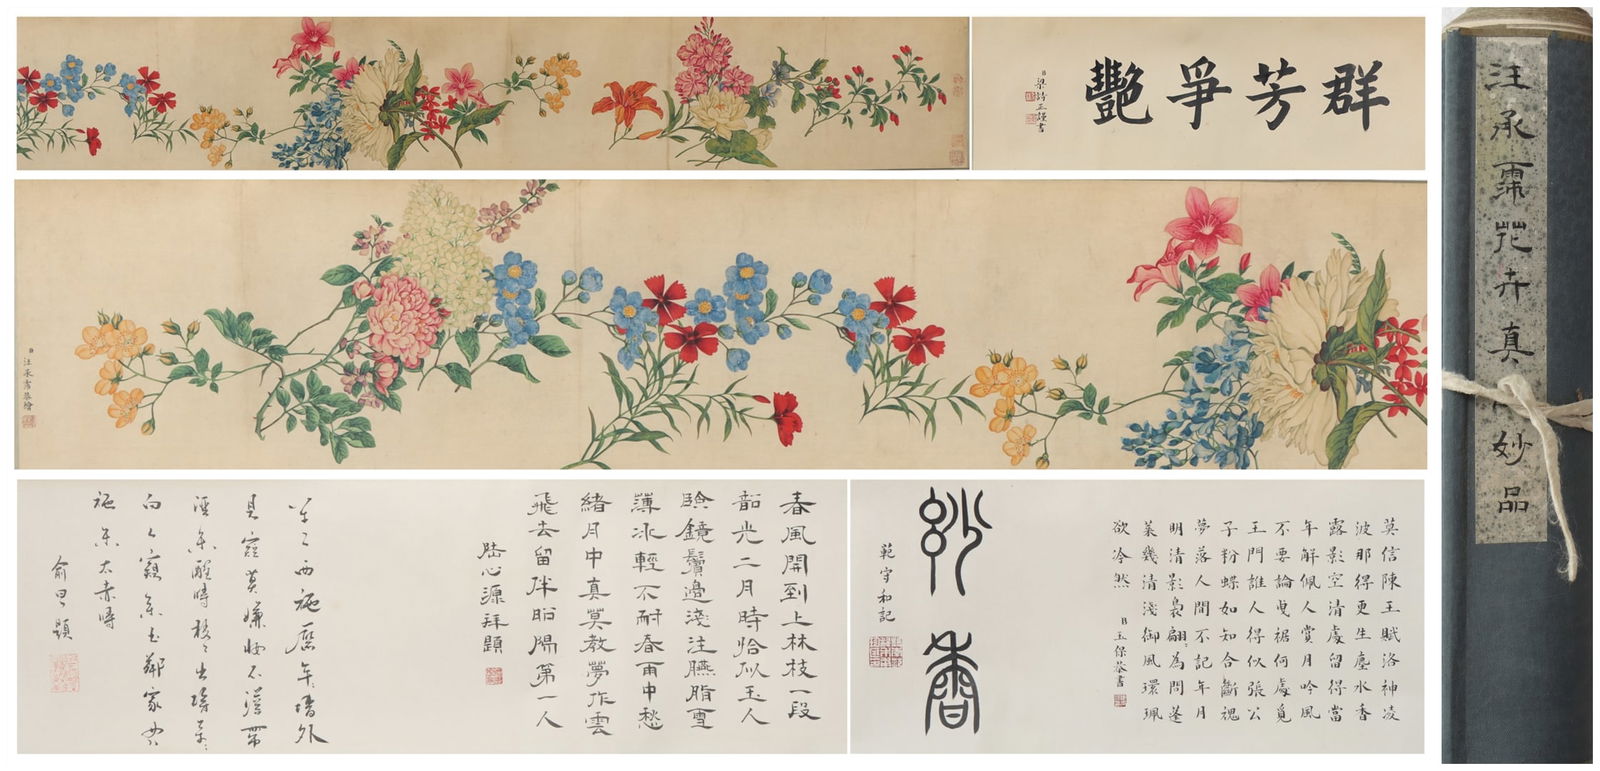 群芳爭艷
臣梁詩正謹書
汪承霈花卉真
妙品
臣汪承霈恭繪
莫信陳王賦洛神凌
波那得更生塵水香
露影空清處留得當
年解佩人賞月吟風
不要論曵裾何處覓
王門誰人得似張公
子粉蝶如知合斷魂
夢落人間不記年月
明清影裊翩為問蓬
萊幾清淺御風環珮
欲冷然
臣王保恭書
妙香
範守和記
春風開到上林枝一段
韶光二月時恰似玉人
臨鏡鬢邊淺注臙脂雪
薄冰輕不耐春雨中愁
緒月中真莫教夢作雲
飛去留伴昭陽第一人
陸心源拜題
具寇莫嫌妝不濃帶
酒系醒時
白々竊系書鄰家
俞曰題